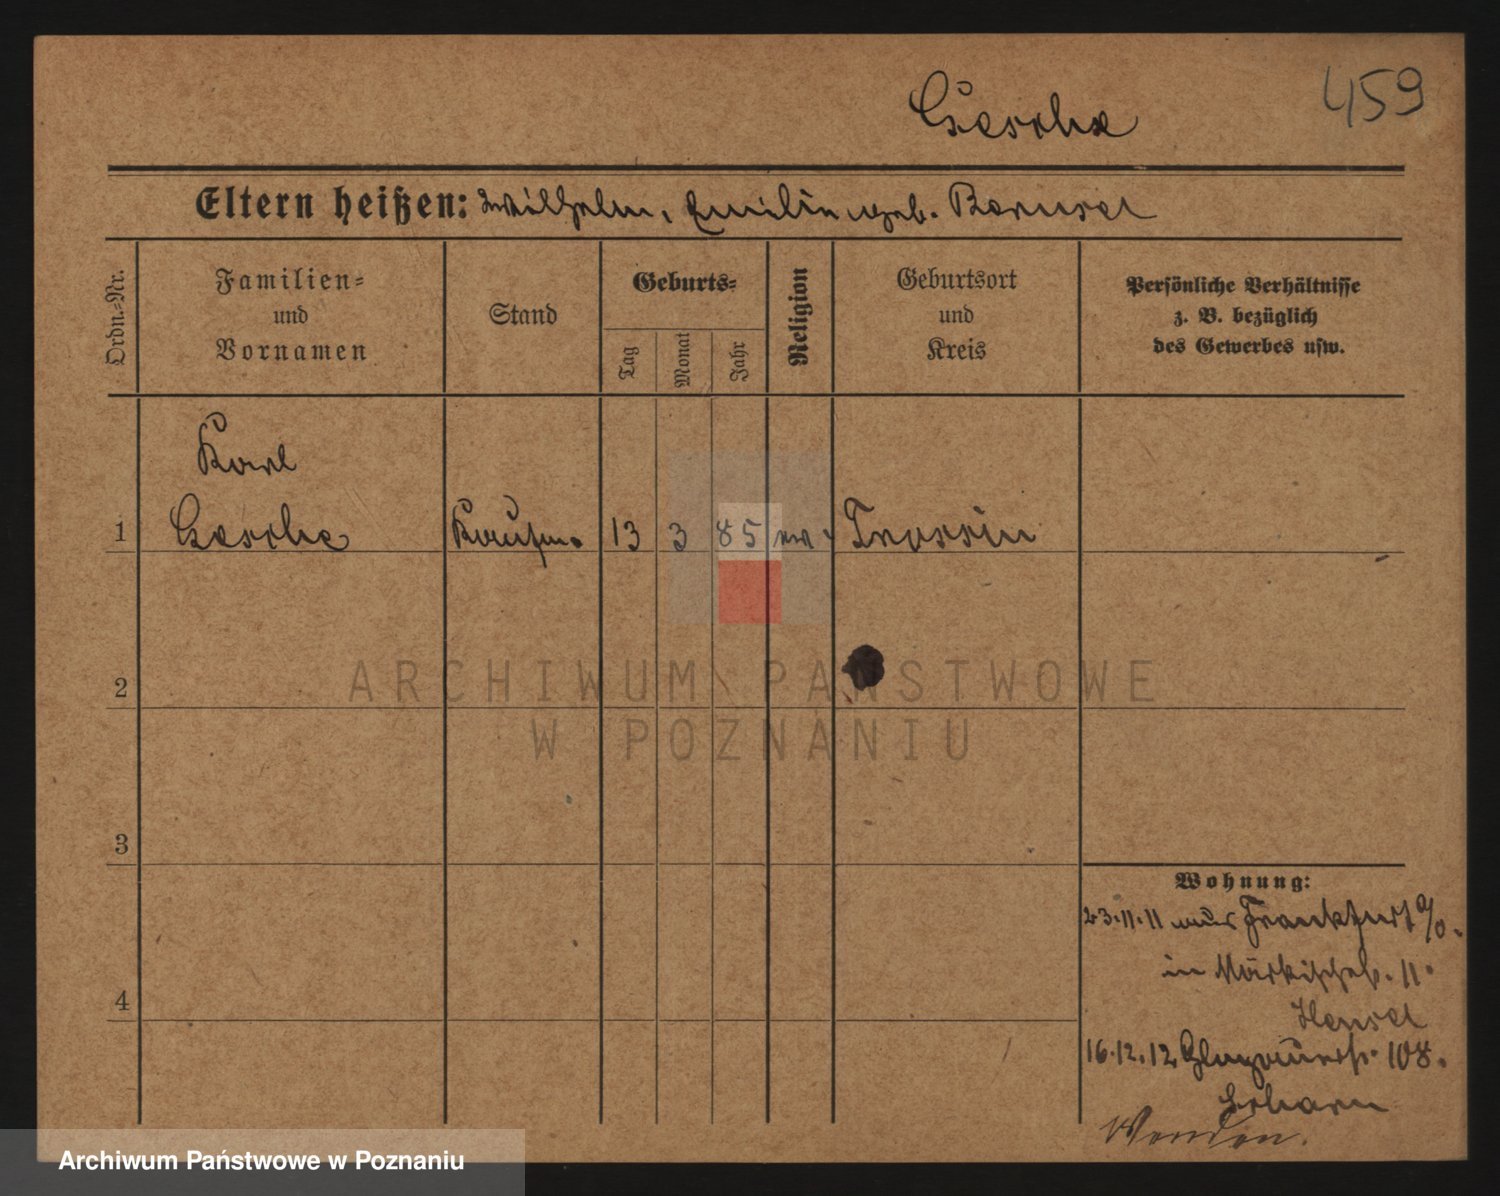 459
Geschke
Eltern heißen: Wilhelm, Emilie geb.
Ordn.-Nr.
Familien-
und
Vornamen
Stand
Geburts-
Tag
Monat
Jahr
Religion
Geburtsort
und
Kreis
Persönliche Verhältnisse
z. B. bezüglich
des Gewerbes usw.
Karl
1 Geschke Kaufm. 13 3 85 ev. Trossin
2
ARCHIWUM PAŃSTWOWE
W POZNANIU
3
4
Wohnung:
23.11.11 aus Frankfurt a/O.
in 11
Hensel
16.12.12 108.
Wenden.
Archiwum Państwowe w Poznaniu